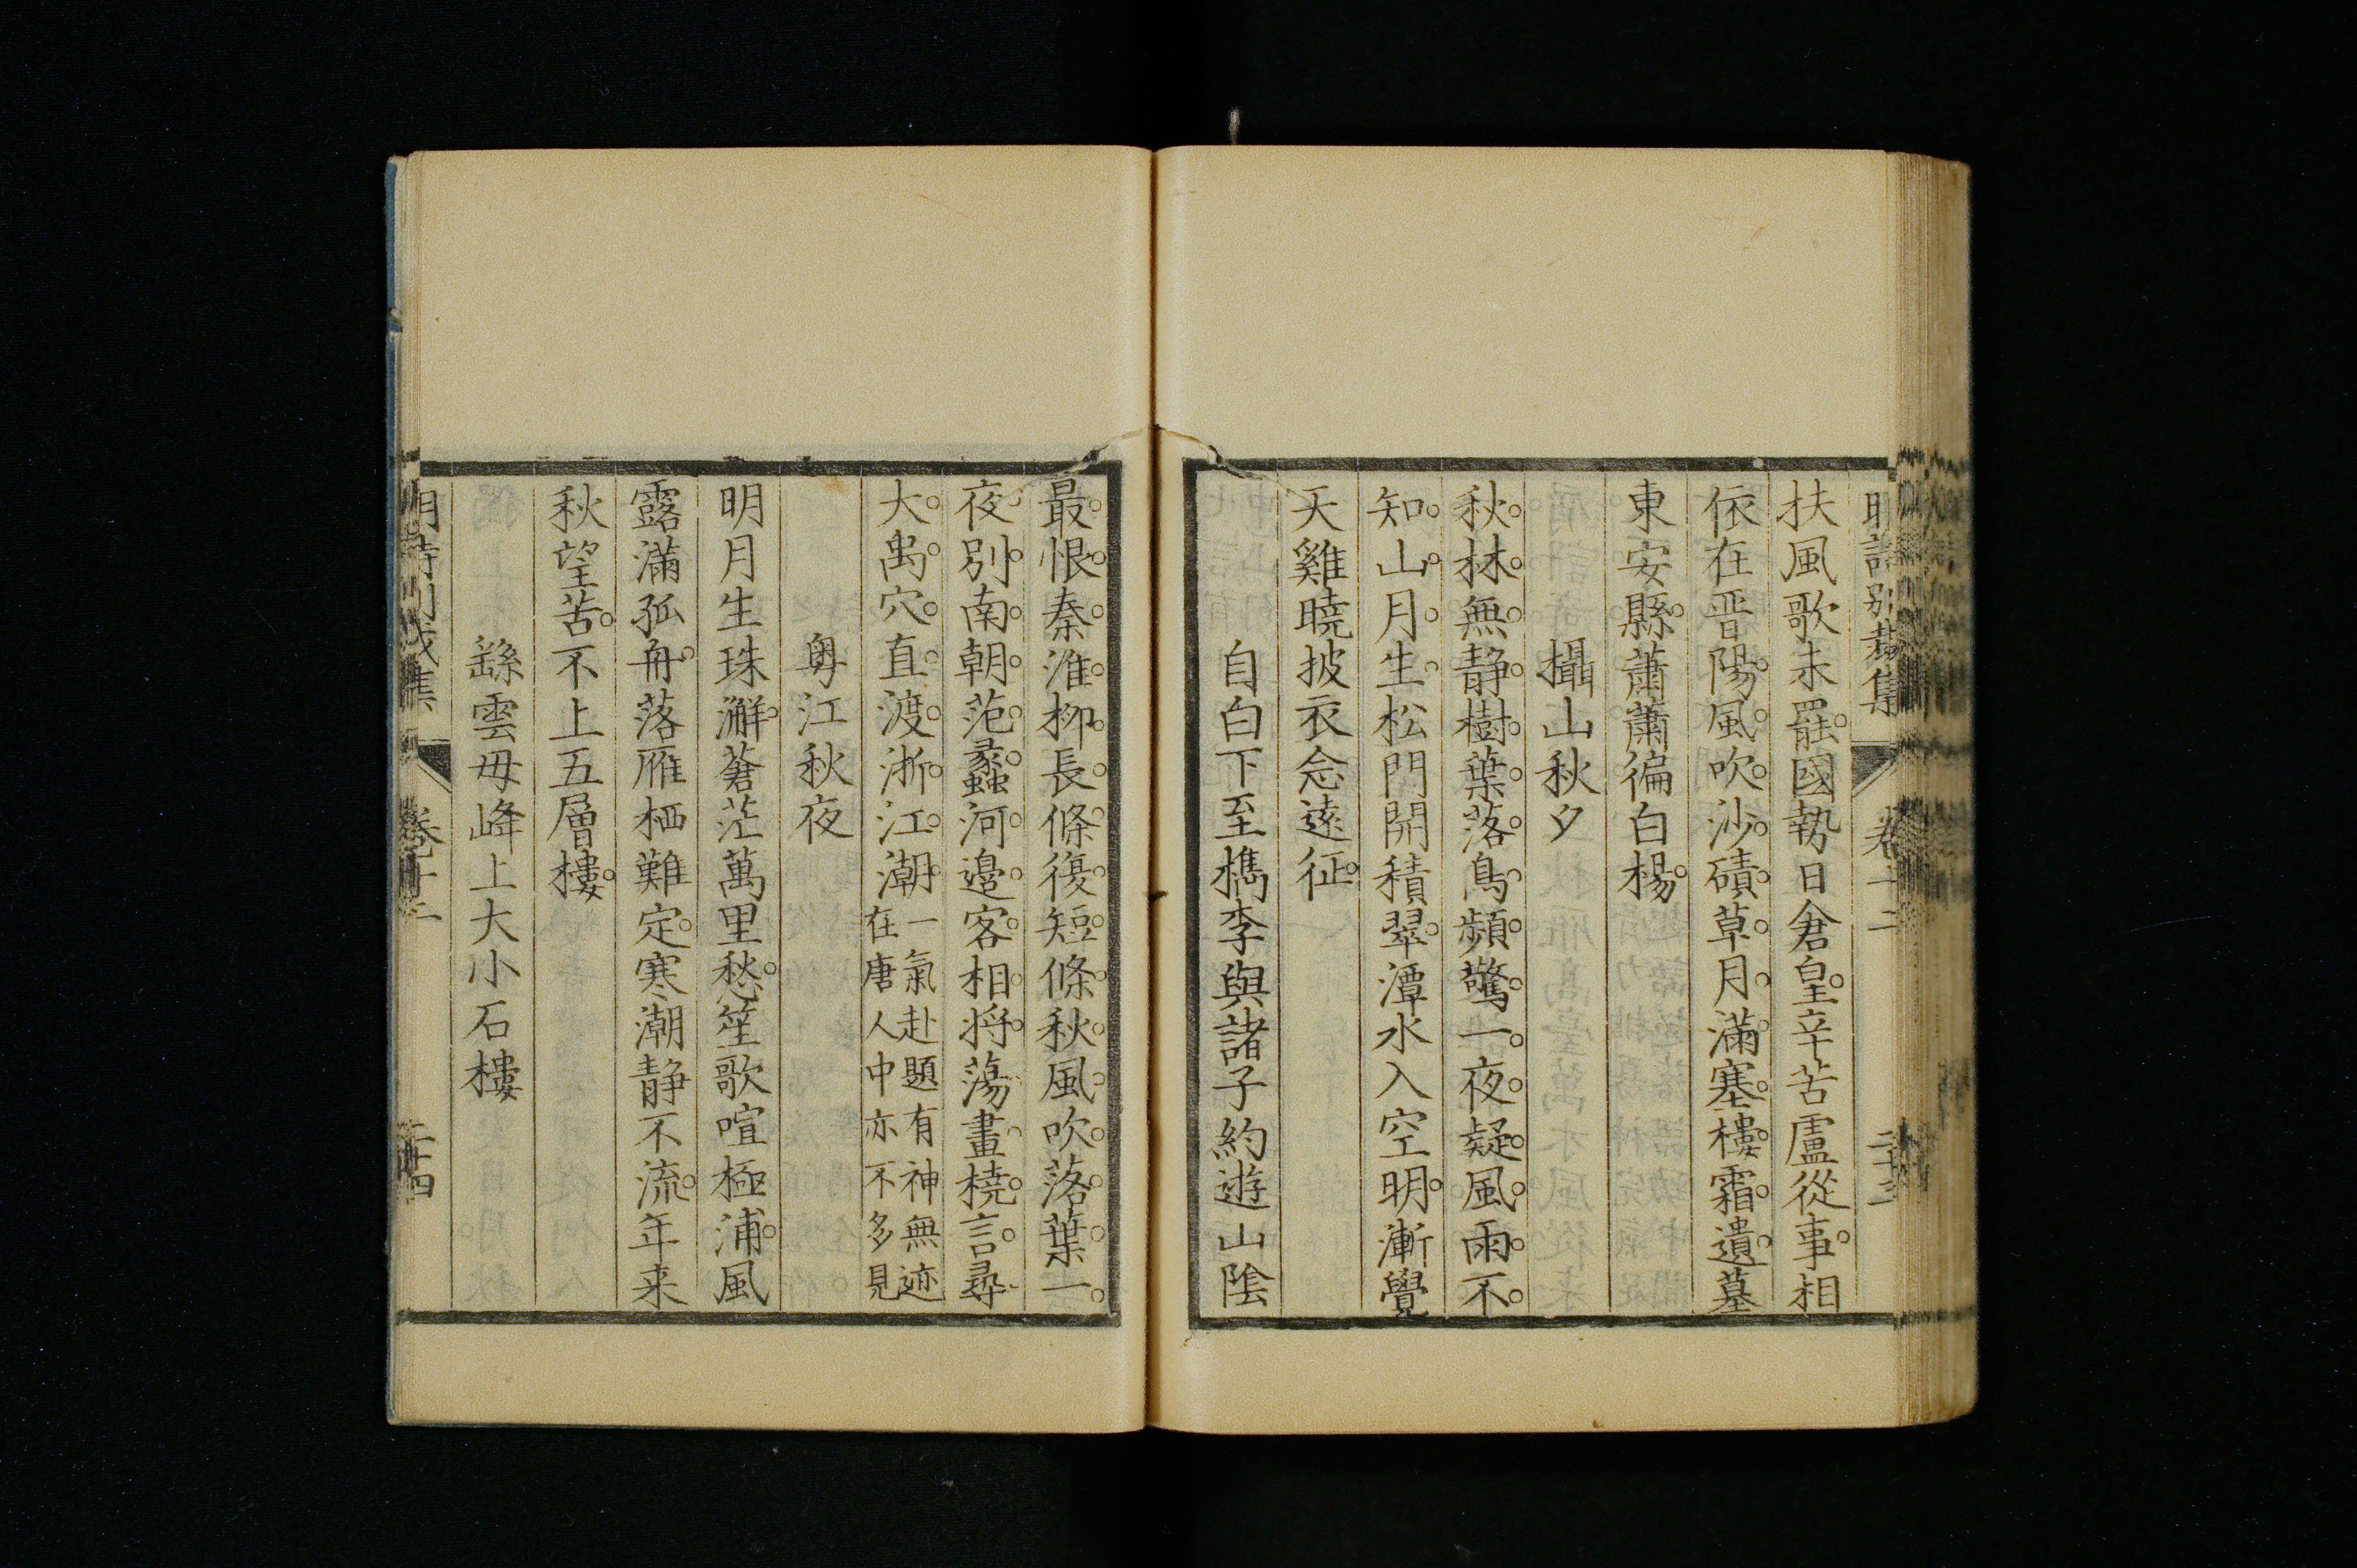 明詩別裁集 卷十二 二十三
扶風歌未罷國勢日倉皇辛苦盧從事相
依在晋陽風吹沙磧草月滿塞樓霜遺墓
東安縣蕭蕭徧白楊
攝山秋夕
秋林無静樹葉落鳥頻驚一夜疑風雨不
知山月生松門開積翠潭水入空明漸覺
天雞曉披衣念遠征
自白下至檇李與諸子約遊山陰
最恨秦淮柳長條復短條秋風吹落葉一
夜別南朝范蠡河邉客相将蕩畫橈言尋
大禹穴直渡浙江潮一氣赴題有神無迹
在唐人中亦不多見
粤江秋夜
明月生珠澥蒼茫萬里愁笙歌喧極浦風
露滿孤舟落雁栖難定寒潮静不流年来
秋望苦不上五層樓
繇雲毋峰上大小石樓
明詩別裁集 卷十二 二十四